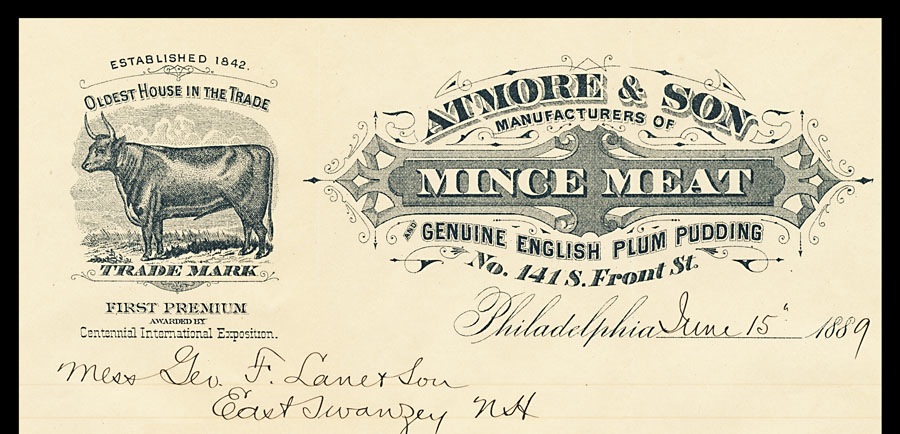 ESTABLISHED 1842.
OLDEST HOUSE IN THE TRADE
TRADE MARK
FIRST PREMIUM
AWARDED BY
Centennial International Exposition.
ATMORE & SON
MANUFACTURERS OF
MINCE MEAT
AND GENUINE ENGLISH PLUM PUDDING
No. 141 S. Front St.
Philadelphia June 15" 1889
Mess Geo. F. Lane & Son
East Swanzey NH